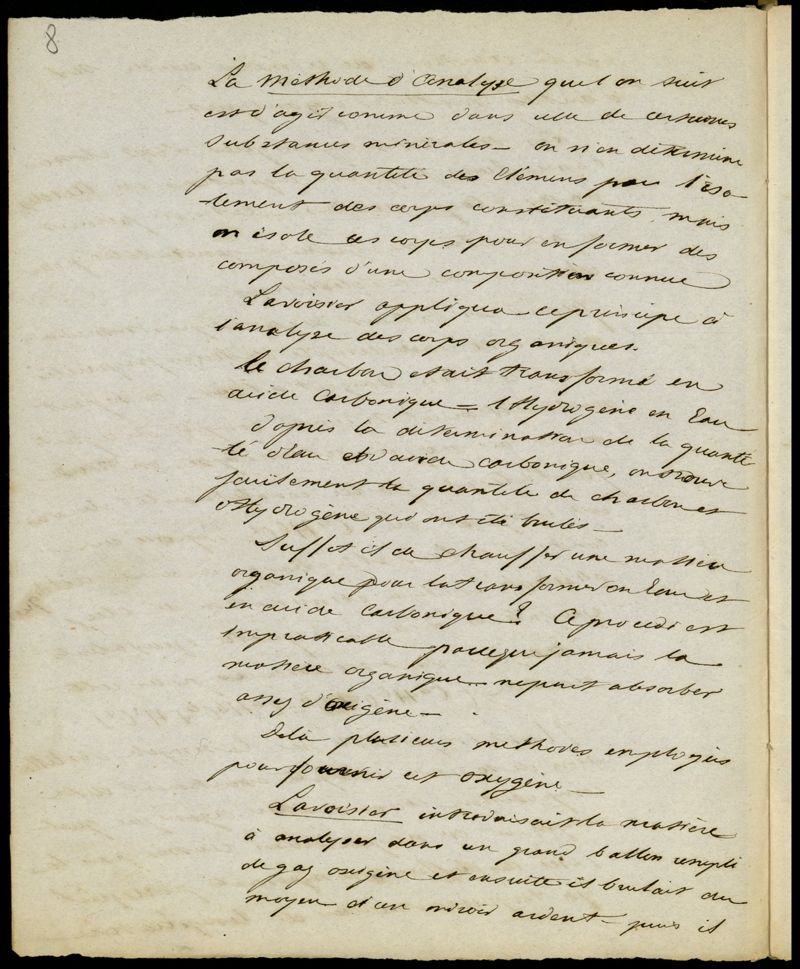 8
La methode d'analyse que l'on suit
est d'agir comme dans celle de certaines
substances minérales — on n'en détermine
pas la quantité des élémens par l'iso-
lement des corps constituants, mais
on isole ces corps pour en former des
composés d'une composition connue
Lavoisier appliqua ce principe à
l'analyse des corps organiques.
le charbon etait transformé en
acide carbonique — l'Hydrogène en Eau
d'après la détermination de la quanti-
té d'eau et d'acide carbonique, on trouve
facilement la quantité de charbon et
d'Hydrogène qui ont été brulés —
Suffit il de chauffer une matiere
organique pour la transformer en Eau et
en acide carbonique? Ce procédé est
impraticable parceque jamais la
matiere organique ne peut absorber
assez d'oxigène —
De là plusieurs méthodes employées
pour fournir cet oxygène —
Lavoisier introduisait la matière
à analyser dans un grand ballon rempli
de gaz oxigène et ensuite il brulait au
moyen d'un miroir ardent — puis il